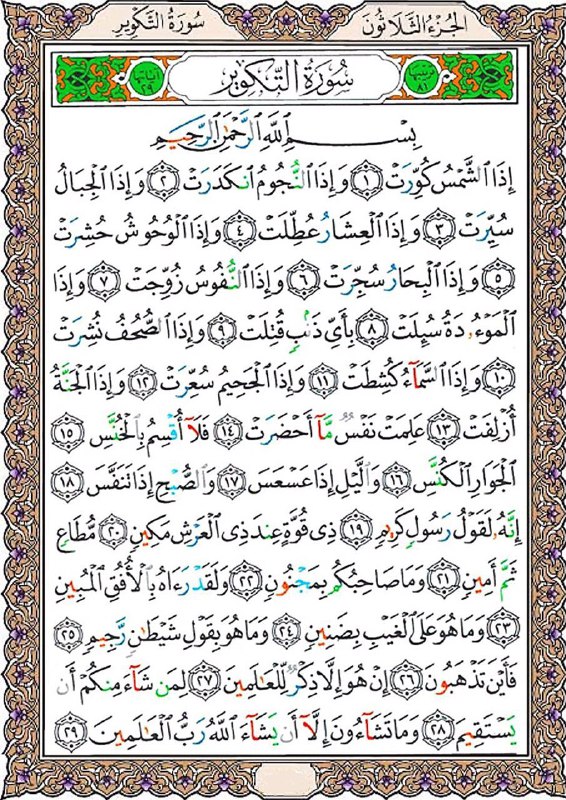 الجزء الثلاثون
سورة التكوير
ترتيبها ٨١
سورة التكوير
آياتها ٢٩
بِسْمِ اللَّهِ الرَّحْمَٰنِ الرَّحِيمِ
إِذَا الشَّمْسُ كُوِّرَتْ ١ وَإِذَا النُّجُومُ انْكَدَرَتْ ٢ وَإِذَا الْجِبَالُ
سُيِّرَتْ ٣ وَإِذَا الْعِشَارُ عُطِّلَتْ ٤ وَإِذَا الْوُحُوشُ حُشِرَتْ
٥ وَإِذَا الْبِحَارُ سُجِّرَتْ ٦ وَإِذَا النُّفُوسُ زُوِّجَتْ ٧ وَإِذَا
الْمَوْءُودَةُ سُئِلَتْ ٨ بِأَيِّ ذَنْبٍ قُتِلَتْ ٩ وَإِذَا الصُّحُفُ نُشِرَتْ
١٠ وَإِذَا السَّمَاءُ كُشِطَتْ ١١ وَإِذَا الْجَحِيمُ سُعِّرَتْ ١٢ وَإِذَا الْجَنَّةُ
أُزْلِفَتْ ١٣ عَلِمَتْ نَفْسٌ مَّا أَحْضَرَتْ ١٤ فَلَا أُقْسِمُ بِالْخُنَّسِ ١٥
الْجَوَارِ الْكُنَّسِ ١٦ وَاللَّيْلِ إِذَا عَسْعَسَ ١٧ وَالصُّبْحِ إِذَا تَنَفَّسَ ١٨
إِنَّهُ لَقَوْلُ رَسُولٍ كَرِيمٍ ١٩ ذِي قُوَّةٍ عِندَ ذِي الْعَرْشِ مَكِينٍ ٢٠ مُّطَاعٍ
ثَمَّ أَمِينٍ ٢١ وَمَا صَاحِبُكُم بِمَجْنُونٍ ٢٢ وَلَقَدْ رَءَاهُ بِالْأُفُقِ الْمُبِينِ
٢٣ وَمَا هُوَ عَلَى الْغَيْبِ بِضَنِينٍ ٢٤ وَمَا هُوَ بِقَوْلِ شَيْطَٰنٍ رَّجِيمٍ ٢٥
فَأَيْنَ تَذْهَبُونَ ٢٦ إِنْ هُوَ إِلَّا ذِكْرٌ لِّلْعَٰلَمِينَ ٢٧ لِمَن شَاءَ مِنكُمْ أَن
يَسْتَقِيمَ ٢٨ وَمَا تَشَاءُونَ إِلَّا أَن يَشَاءَ اللَّهُ رَبُّ الْعَٰلَمِينَ ٢٩